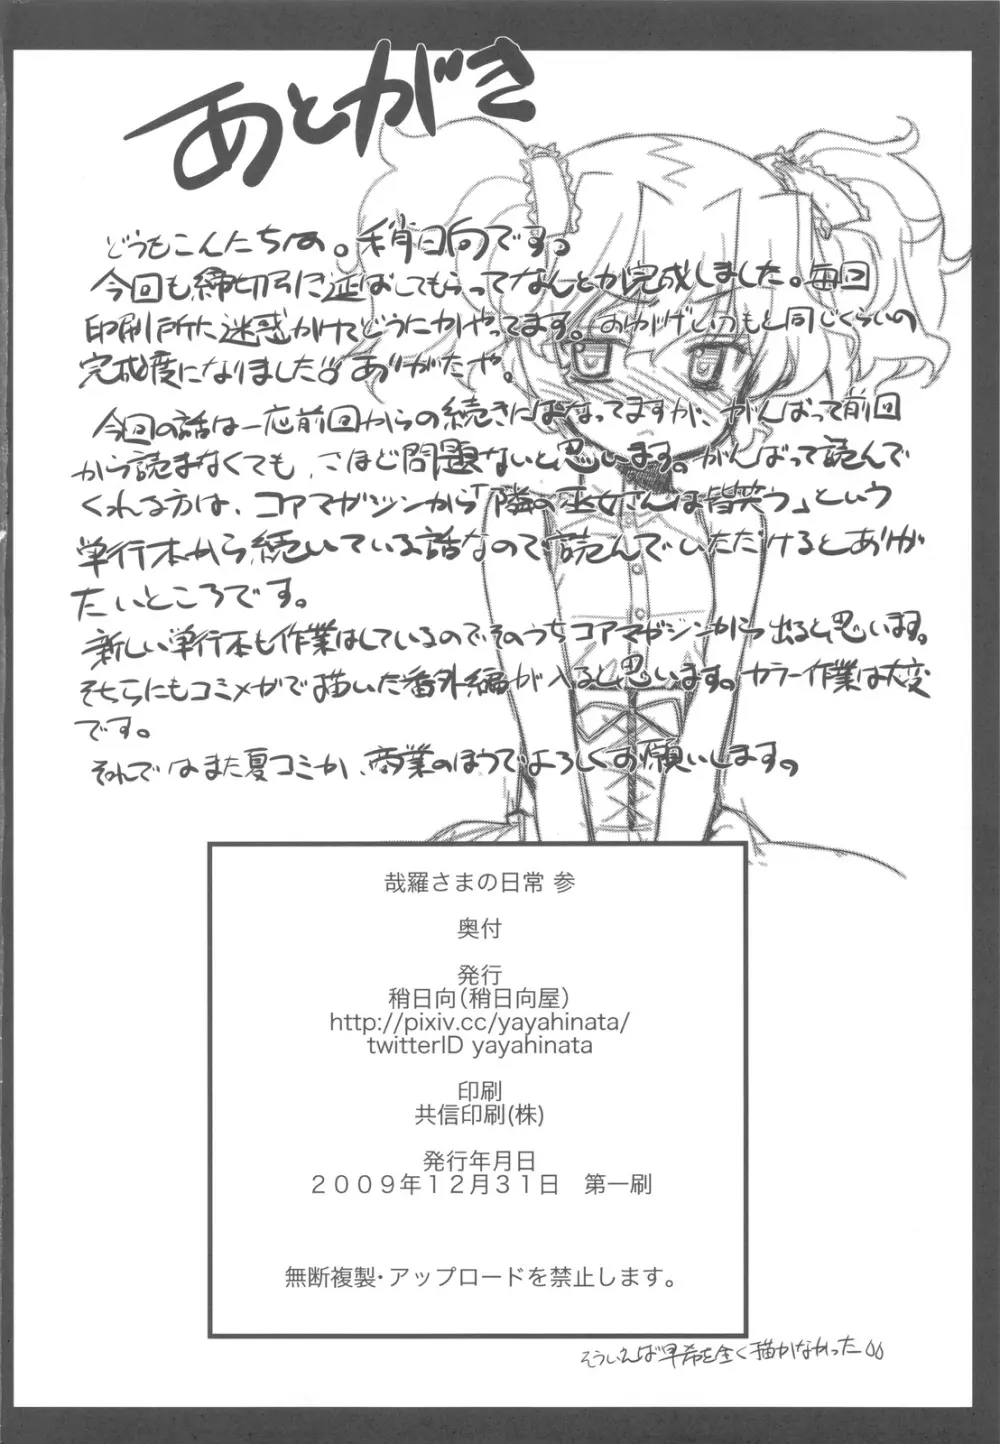 あとがき
どうもこんにちは。稍日向です。
今回も締切引き延ばしてもらってなんとか完成しました。毎回
印刷所に迷惑かけてどうにかやってます。おかげでいつもと同じくらいの
完成度になりました。ありがたや。
今回の話は一応前回からの続きにはなってますが、がんばって前回
から読まなくても、さほど問題ないと思います。がんばって読んで
くれる方は、コアマガジンから「隣の巫女さんは皆笑う」という
単行本から続いている話なので読んでいただけるとありが
たいところです。
新しい単行本も作業はしているのでそのうちコアマガジンから出ると思います。
そちらにもコミメガで描いた番外編が入ると思います。カラー作業は大変
です。
それではまた夏コミか、商業のほうでよろしくお願いします。
哉羅さまの日常 参
奥付
発行
稍日向(稍日向屋)
http://pixiv.cc/yayahinata/
twitterID yayahinata
印刷
共信印刷(株)
発行年月日
2009年12月31日 第一刷
無断複製・アップロードを禁止します。
そういえば早希を全く描かなかった